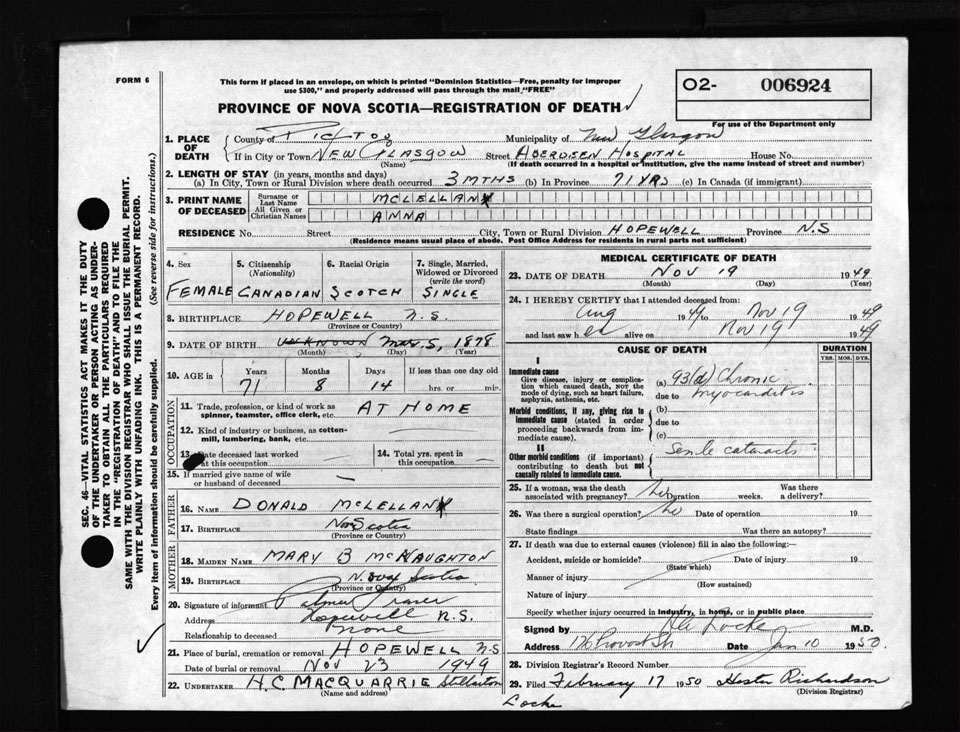 FORM 6
This form if placed in an envelope, on which is printed "Dominion Statistics—Free, penalty for improper
use $300," and properly addressed will pass through the mail "FREE"
PROVINCE OF NOVA SCOTIA—REGISTRATION OF DEATH
O2- 006924
For use of the Department only
SEC. 46—VITAL STATISTICS ACT MAKES IT THE DUTY
OF THE UNDERTAKER OR PERSON ACTING AS UNDER-
TAKER TO OBTAIN ALL THE PARTICULARS REQUIRED
IN THE "REGISTRATION OF DEATH" AND TO FILE THE
SAME WITH THE DIVISION REGISTRAR WHO SHALL ISSUE THE BURIAL PERMIT.
WRITE PLAINLY WITH UNFADING INK. THIS IS A PERMANENT RECORD.
Every item of information should be carefully supplied. (See reverse side for instructions.)
1. PLACE OF DEATH
County of Pictou Municipality of New Glasgow
If in City or Town NEW GLASGOW Street ABERDEEN HOSPITAL House No.
(Name) (If death occurred in a hospital or institution, give the name instead of street and number)
2. LENGTH OF STAY (in years, months and days)
(a) In City, Town or Rural Division where death occurred 3 MTHS (b) In Province 71 YRS (c) In Canada (if immigrant)
3. PRINT NAME OF DECEASED
Surname or Last Name MCLELLAN
All Given or Christian Names ANNA
RESIDENCE No. Street City, Town or Rural Division HOPEWELL Province N.S
(Residence means usual place of abode. Post Office Address for residents in rural parts not sufficient)
4. Sex FEMALE
5. Citizenship (Nationality) CANADIAN
6. Racial Origin SCOTCH
7. Single, Married, Widowed or Divorced (write the word) SINGLE
8. BIRTHPLACE HOPEWELL N.S.
(Province or Country)
9. DATE OF BIRTH UNKNOWN Mar. 5, 1878
(Month) (Day) (Year)
10. AGE in Years Months Days If less than one day old
71 8 14 hrs. or min.
OCCUPATION
11. Trade, profession, or kind of work as spinner, teamster, office clerk, etc. AT HOME
12. Kind of industry or business, as cotton-mill, lumbering, bank, etc.
13. Date deceased last worked at this occupation
14. Total yrs. spent in this occupation
15. If married give name of wife or husband of deceased
FATHER
16. NAME DONALD MCLELLAN
17. BIRTHPLACE Nova Scotia
(Province or Country)
MOTHER
18. MAIDEN NAME MARY B MCNAUGHTON
19. BIRTHPLACE Nova Scotia
(Province or Country)
20. Signature of informant Palmer Fraser
Address Hopewell N.S.
Relationship to deceased none
21. Place of burial, cremation or removal HOPEWELL N.S
Date of burial or removal NOV 23 1949
22. UNDERTAKER H.C. MACQUARRIE Stellarton
(Name and address)
MEDICAL CERTIFICATE OF DEATH
23. DATE OF DEATH NOV 19 1949
(Month) (Day) (Year)
24. I HEREBY CERTIFY that I attended deceased from:
Aug 1949 to Nov 19 1949
and last saw her alive on Nov 19 1949
CAUSE OF DEATH
DURATION
YRS. MOS. DYS.
I
Immediate cause
Give disease, injury or complication which caused death, Nor the mode of dying, such as heart failure, asphyxia, asthenia, etc.
(a) 93(d) Chronic
due to myocarditis
Morbid conditions, if any, giving rise to immediate cause (stated in order proceeding backwards from immediate cause).
(b)
due to
(c)
II
Other morbid conditions (if important) contributing to death but not causally related to immediate cause.
Senile cataracts
25. If a woman, was the death associated with pregnancy? No Duration weeks. Was there a delivery?
26. Was there a surgical operation? No Date of operation 19
State findings Was there an autopsy?
27. If death was due to external causes (violence) fill in also the following:—
Accident, suicide or homicide? Date of injury 19
(State which)
Manner of injury
(How sustained)
Nature of injury
Specify whether injury occurred in industry, in home, or in public place
Signed by Locke M.D.
Address 176 Provost St Date Jan 10 1950.
28. Division Registrar's Record Number
29. Filed February 17 1950 Hester Richardson
(Division Registrar)
Locke